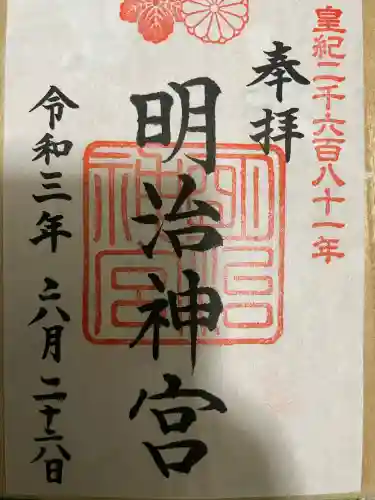 皇紀二千六百八十一年
奉拝
明治神宮
明治
神宮
令和三年 六月二十六日